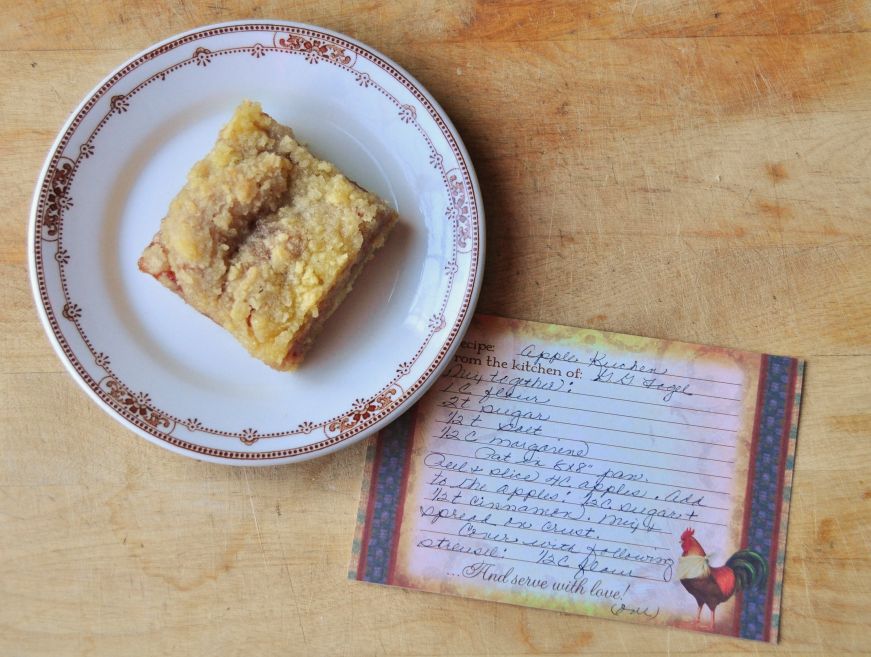 ecipe: Apple Kuchen
from the kitchen of: G.G. Fogel
Mix together:
1 C flour
2t sugar
1/2 t salt
1/2 C margarine
Pat in 8x8" pan.
Peel & slice 4C apples. Add
to the apples: 1/2C sugar &
1/2t cinnamon. Mix &
spread on crust.
Cover with following
streusel: 1/2C flour
...And serve with love!
(over)